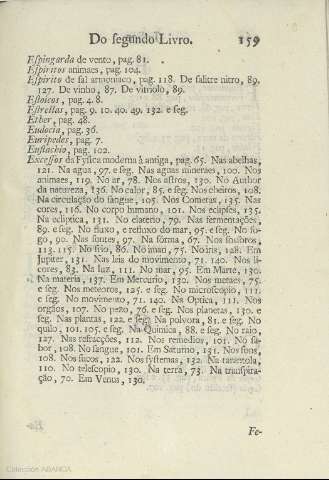 Do segundo Livro. 159
Espingarda de vento, pag. 81.
Espiritos animaes, pag. 104.
Espirito de sal armoniaco, pag. 118. De salitre nitro, 89.
127. De vinho, 87. De vitriolo, 89.
Estoicos, pag. 4. 8.
Estrellas, pag. 9. 10. 40. 49. 132. e seg.
Ether, pag. 48.
Eudocia, pag. 36.
Euripedes, pag. 7.
Eustachio, pag. 102.
Excessos da Fysica moderna à antiga, pag. 65. Nas abelhas,
121. Na agua, 97. e seg. Nas aguas mineraes, 100. Nos
animaes, 119. No ar, 78. Nos astros, 130. No Author
da natureza, 136. No calor, 85. e seg. Nos cheiros, 108.
Na circulação do sangue, 105. Nos Cometas, 135. Nas
cores, 116. No corpo humano, 101. Nos eclipses, 135.
Na ecliptica, 131. No elaterio, 79. Nas fermentações,
89. e seg. No fluxo, e refluxo do mar, 95. e seg. No fo-
go, 90. Nas fontes, 97. Na fórma, 67. Nos fosforos,
113. 115. No frio, 86. No iman, 75. No iris, 128. Em
Jupiter, 131. Nas leis do movimento, 71. 140. Nos li-
cores, 83. Na luz, 111. No mar, 95. Em Marte, 130.
Na materia, 137. Em Mercurio, 130. Nos metaes, 75.
e seg. Nos meteoros, 125. e seg. No microscopio, 111.
e seg. No movimento, 71. 140. Na Optica, 111. Nos
orgãos, 107. No pezo, 76. e seg. Nos planetas, 130. e
seg. Nas plantas, 122. e seg. Na polvora, 81. e seg. No
quilo, 101. 105. e seg. Na Quimica, 88. e seg. No raio,
127. Nas refracções, 112. Nos remedios, 101. No sa-
bor, 108. No sangue, 101. Em Saturno, 131. Nos sons,
108. Nos succos, 122. Nos systemas, 132. Na tarantola,
110. No telescopio, 130. Na terra, 73. Na transpira-
ção, 70. Em Venus, 130.
Fe-
Colección ABANCA